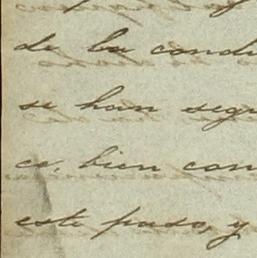 de la condu
se han segu
ce, bien con
este paso, y